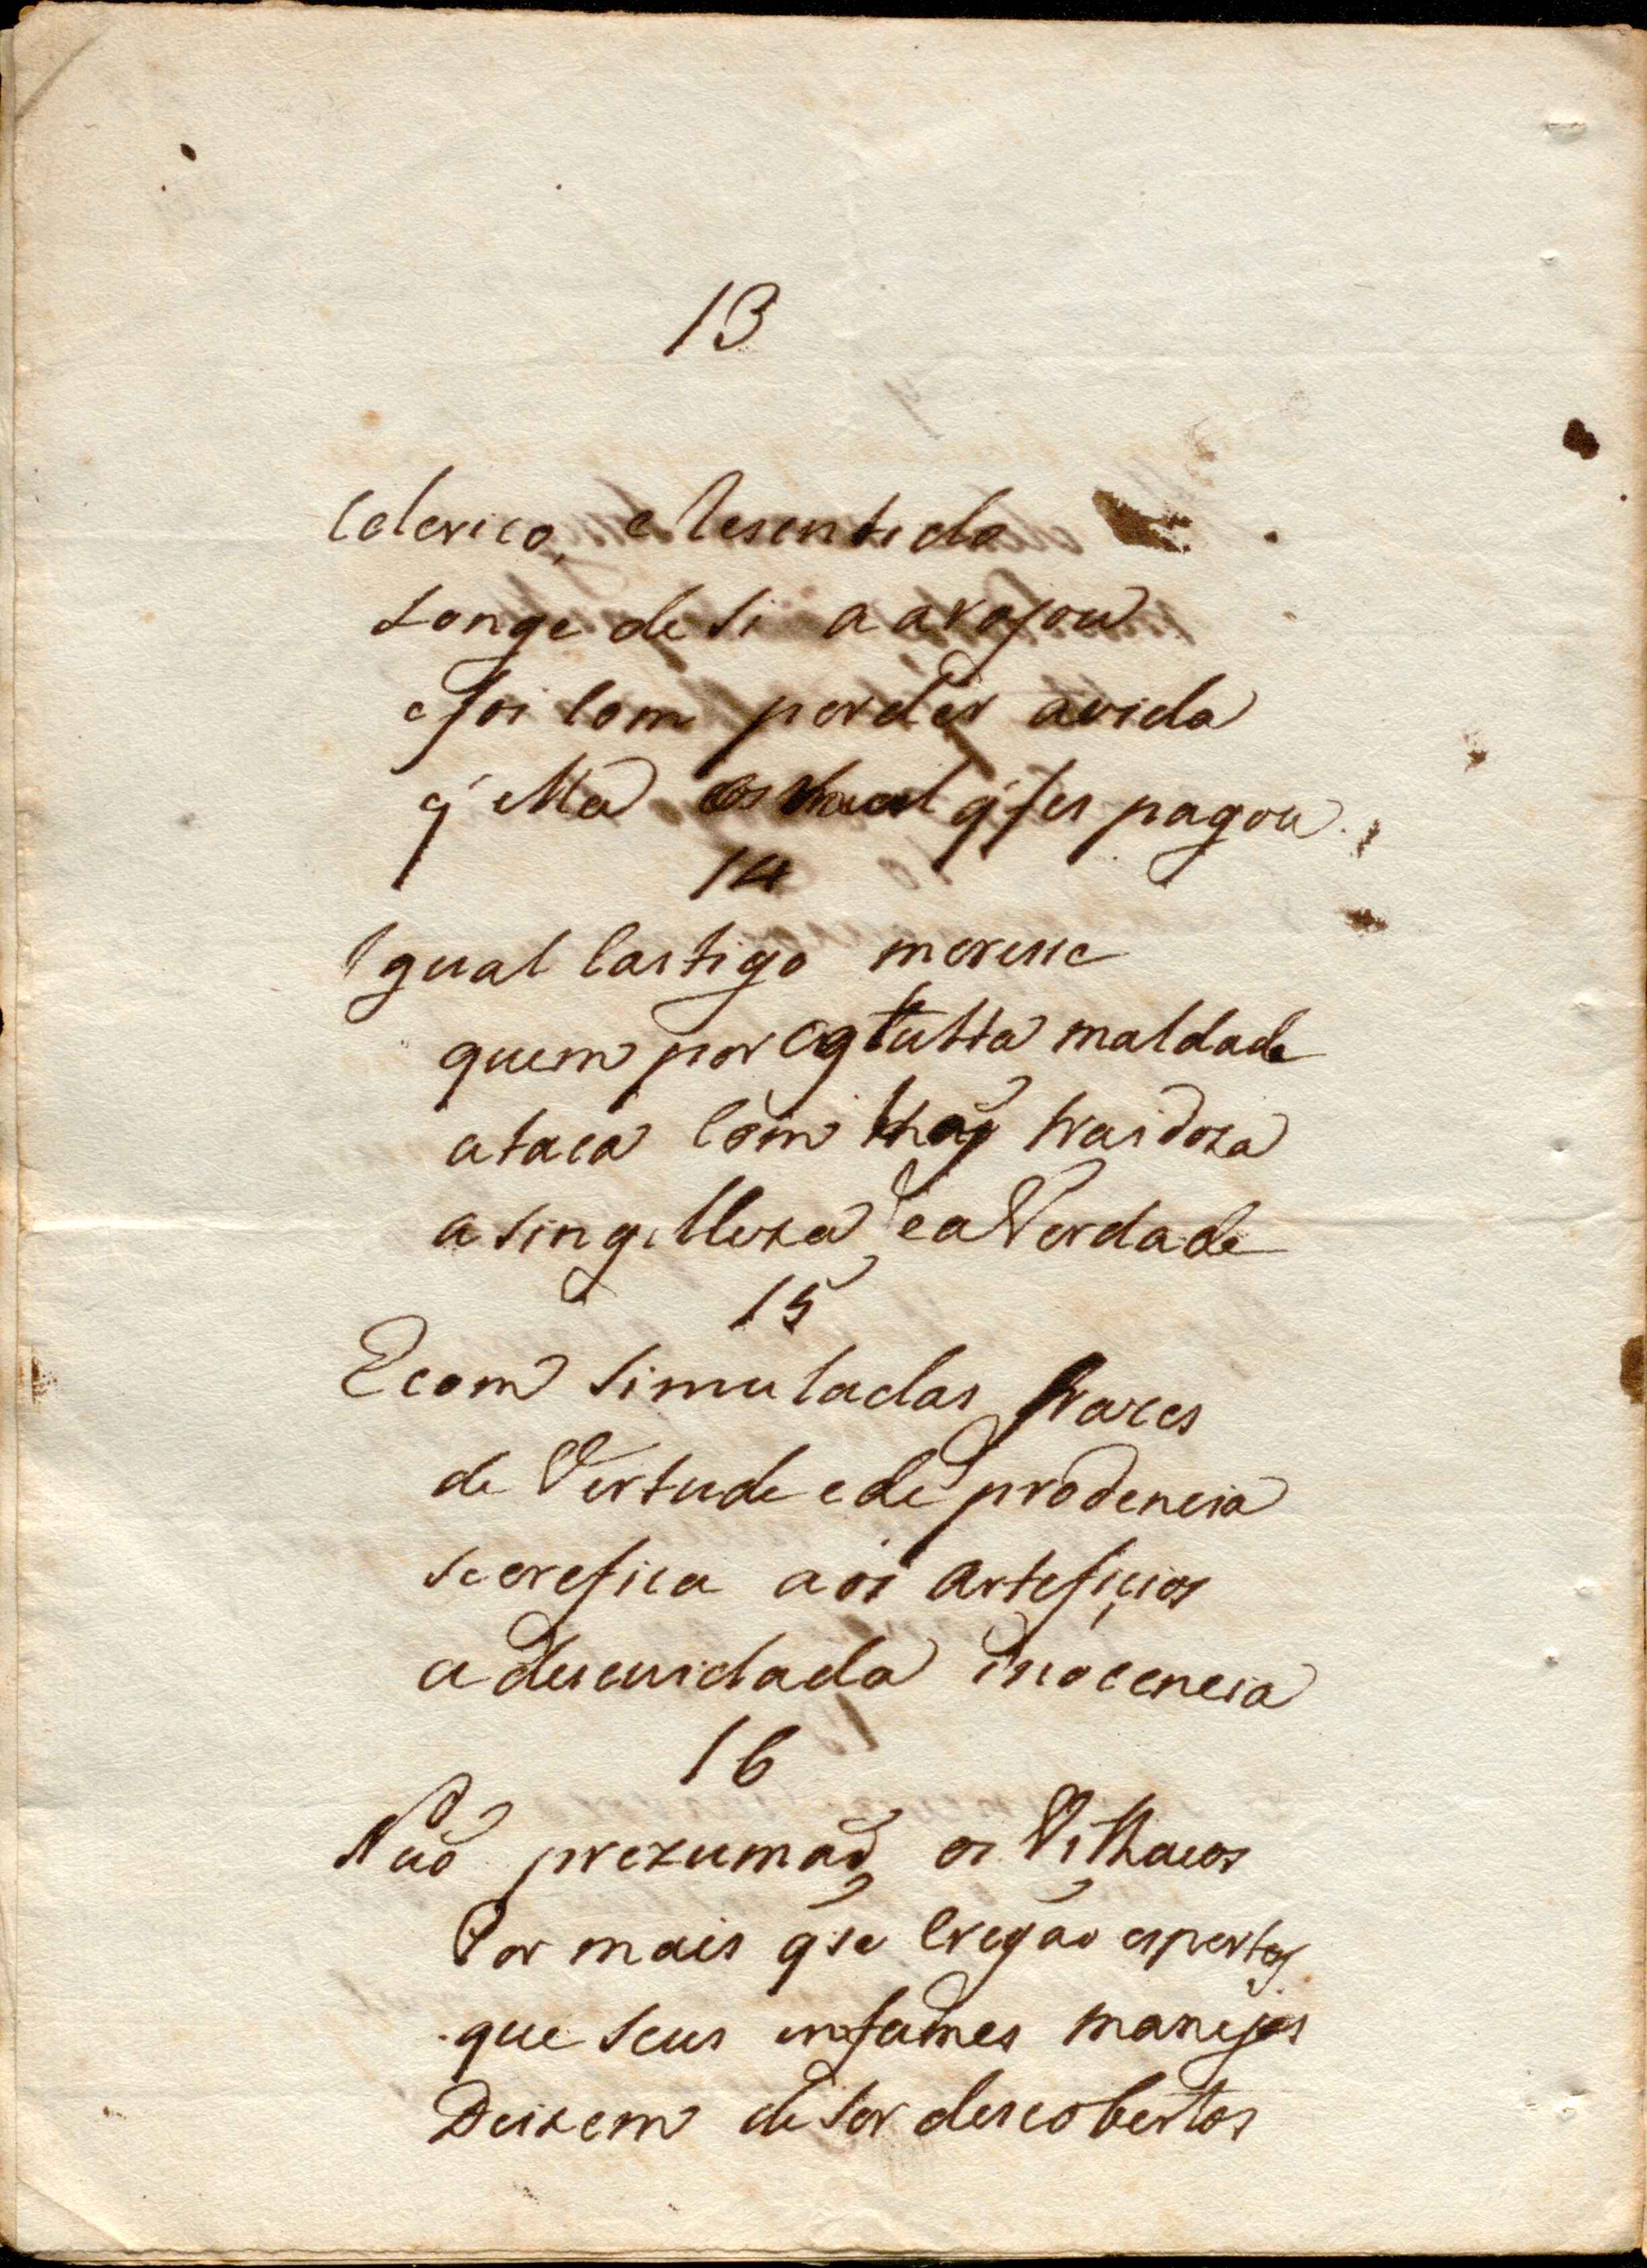 13
Colerico, e Resentido
Longe de si a arojou
e foi com perder avida
q̃ ella os mal q̃ fes pagou.
14
Igual Castigo meresse
quem por occulta maldade
ataca com maõ traidora
a singilleza, ea Verdade
15
E com simuladas frazes
de Vertude e de prodencia
screfica aos artefiçios
a descuidada inocencia
16
Naõ prezumaõ os Vilhacos
Por mais q̃ se creyao espertos
que seus infames manejos
Deixem de ser descobertos